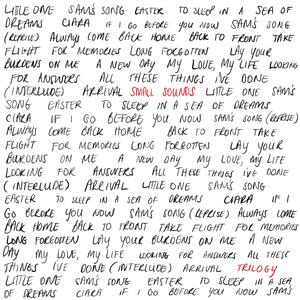 LITTLE ONE SAM'S SONG EASTER TO SLEEP IN A SEA OF
DREAMS CIARA IF I GO BEFORE YOU NOW SAM'S SONG
(REPRISE) ALWAYS COME BACK HOME BACK TO FRONT TAKE
FLIGHT FOR MEMORIES LONG FORGOTTEN LAY YOUR
BURDENS ON ME A NEW DAY MY LOVE, MY LIFE LOOKING
FOR ANSWERS ALL THESE THINGS I'VE DONE
(INTERLUDE) ARRIVAL SMALL SOUNDS LITTLE ONE SAM'S
SONG EASTER TO SLEEP IN A SEA OF DREAMS
CIARA IF I GO BEFORE YOU NOW SAM'S SONG (REPRISE)
ALWAYS COME BACK HOME BACK TO FRONT TAKE
FLIGHT FOR MEMORIES LONG FORGOTTEN LAY YOUR
BURDENS ON ME A NEW DAY MY LOVE, MY LIFE
LOOKING FOR ANSWERS ALL THESE THINGS I'VE DONE
(INTERLUDE) ARRIVAL LITTLE ONE SAM'S SONG
EASTER TO SLEEP IN A SEA OF DREAMS CIARA IF I
GO BEFORE YOU NOW SAM'S SONG (REPRISE) ALWAYS COME
BACK HOME BACK TO FRONT TAKE FLIGHT FOR MEMORIES
LONG FORGOTTEN LAY YOUR BURDENS ON ME A NEW
DAY MY LOVE, MY LIFE LOOKING FOR ANSWERS ALL THESE
THINGS I'VE DONE (INTERLUDE) ARRIVAL TRILOGY
LITTLE ONE SAM'S SONG EASTER TO SLEEP IN A SEA
OF DREAMS CIARA IF I GO BEFORE YOU NOW SAM'S SONG